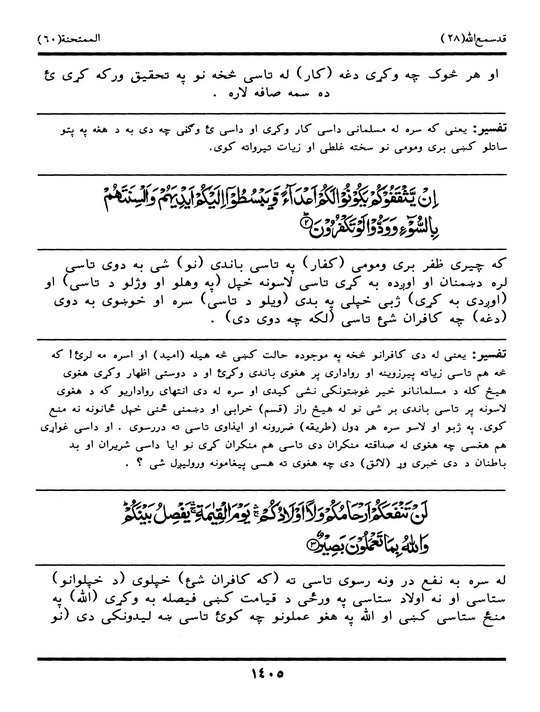 قدسمع‌الله(۲۸) الممتحنة(۶۰)
او هر څوک چه وکړی دغه (کار) له تاسی څخه نو په تحقیق ورکه کړی ئ
ده سمه صافه لاره .
تفسیر: یعنی که سره له مسلمانی داسی کار وکړی او داسی ئ وګڼی چه دی به د هغه په پټو
ساتلو کښی بری ومومی نو سخته غلطی او زیات تیرواته کوی.
اِنْ يَّثْقَفُوْكُمْ يَكُوْنُوْا لَكُمْ اَعْدَآءً وَّيَبْسُطُوْٓا اِلَيْكُمْ اَيْدِيَهُمْ وَاَلْسِنَتَهُمْ
بِالسُّوْٓءِ وَوَدُّوْا لَوْ تَكْفُرُوْنَ ۝۲
که چیری ظفر بری ومومی (کفار) په تاسی باندی (نو) شی به دوی تاسی
لره دښمنان او اوږده به کړی تاسی لاسونه خپل (په وهلو او وژلو د تاسی) او
(اوږدی به کړی) ژبی خپلی په بدی (ویلو د تاسی) سره او خوښوی به دوی
(دغه) چه کافران شئ تاسی (لکه چه دوی دی) .
تفسیر: یعنی له دی کافرانو څخه په موجوده حالت کښی څه هیله (امید) او اسره مه لرئ! که
څه هم تاسی زیاته پیرزوینه او رواداری پر هغوی باندی وکړئ او د دوستی اظهار وکړی هغوی
هیڅ کله د مسلمانانو خیر غوښتونکی نشی کیدی او سره له دی انتهای رواداریو که د هغوی
لاسونه پر تاسی باندی بر شی نو له هیڅ راز (قسم) خرابی او دښمنی څخنی خپل ځانونه نه منع
کوی. په ژبو او لاسو سره هر ډول (طریقه) ضررونه او ایذاوی تاسی ته دررسوی . او داسی غواړی
هم هغسی چه هغوی له صداقته منکران دی تاسی هم منکران کړی نو ایا داسی شریران او بد
باطنان د دی خبری وړ (لائق) دی چه هغوی ته هسی پیغامونه ورولیږل شی ؟ .
لَنْ تَنْفَعَكُمْ اَرْحَامُكُمْ وَلَآ اَوْلَادُكُمْ ۛ يَوْمَ الْقِيٰمَةِ ۛ يَفْصِلُ بَيْنَكُمْ ؕ
وَاللّٰهُ بِمَا تَعْمَلُوْنَ بَصِيْرٌ ۝۳
له سره به نفع در ونه رسوی تاسی ته (که کافران شئ) خپلوی (د خپلوانو)
ستاسی او نه اولاد ستاسی په ورځی د قیامت کښی فیصله به وکړی (الله) په
منځ ستاسی کښی او الله په هغو عملونو چه کوئ تاسی ښه لیدونکی دی (نو
۱۴۰۵